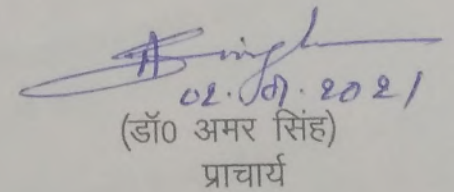 02.07.2021
(डॉ0 अमर सिंह)
प्राचार्य